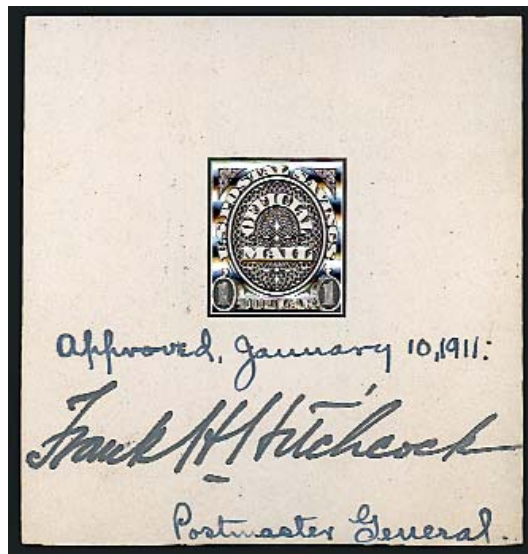 U.S. POSTAL SAVINGS
OFFICIAL
MAIL
1 1
Approved, January 10, 1911:
Frank H Hitchcock
Postmaster General.